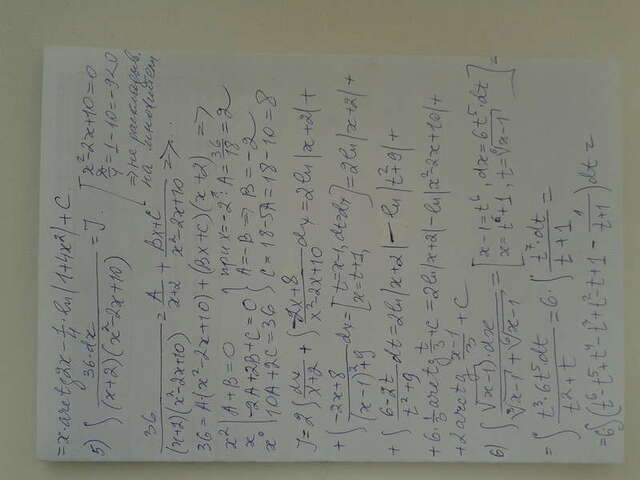 = x·arctg2x − 1/4·ln|1+4x²| + C
5) ∫ 36·dx / (x+2)(x²−2x+10) = J. [x²−2x+10=0
D/4 = 1−10 = −9<0
⇒ не расклад.
на множители
36 / (x+2)(x²−2x+10) = A/(x+2) + (Bx+C)/(x²−2x+10) ⇒
36 = A·(x²−2x+10) + (Bx+C)(x+2) ⇒
x² | A+B=0 } при x=−2: A=36/18=2
x | −2A+2B+C=0 } A=−B ⇒ B=−2
x⁰ | 10A+2C=36 } C=18−5A=18−10=8
J=2∫ dx/(x+2) + ∫ (−2x+8)/(x²−2x+10) dx = 2ln|x+2| +
+ ∫ (−2x+8)/((x−1)²+9) dx = [t=x−1, dt=dx, x=t+1] = 2ln|x+2| +
+ ∫ (6−2t)/(t²+9) dt = 2ln|x+2| − ln|t²+9| +
+ 6·1/3 arctg t/3 + C = 2ln|x+2| − ln|x²−2x+10| +
+ 2arctg (x−1)/3 + C
6) ∫ √(x−1)·dx / (∛(x−1) + ⁶√(x−1)) = [x−1=t⁶, dx=6t⁵·dt, x=t⁶+1, t=⁶√(x−1)] =
= ∫ t³·6t⁵dt / (t²+t) = 6·∫ t⁷·dt / (t+1) =
= 6·∫(t⁶−t⁵+t⁴−t³+t²−t+1 − 1/(t+1))dt =